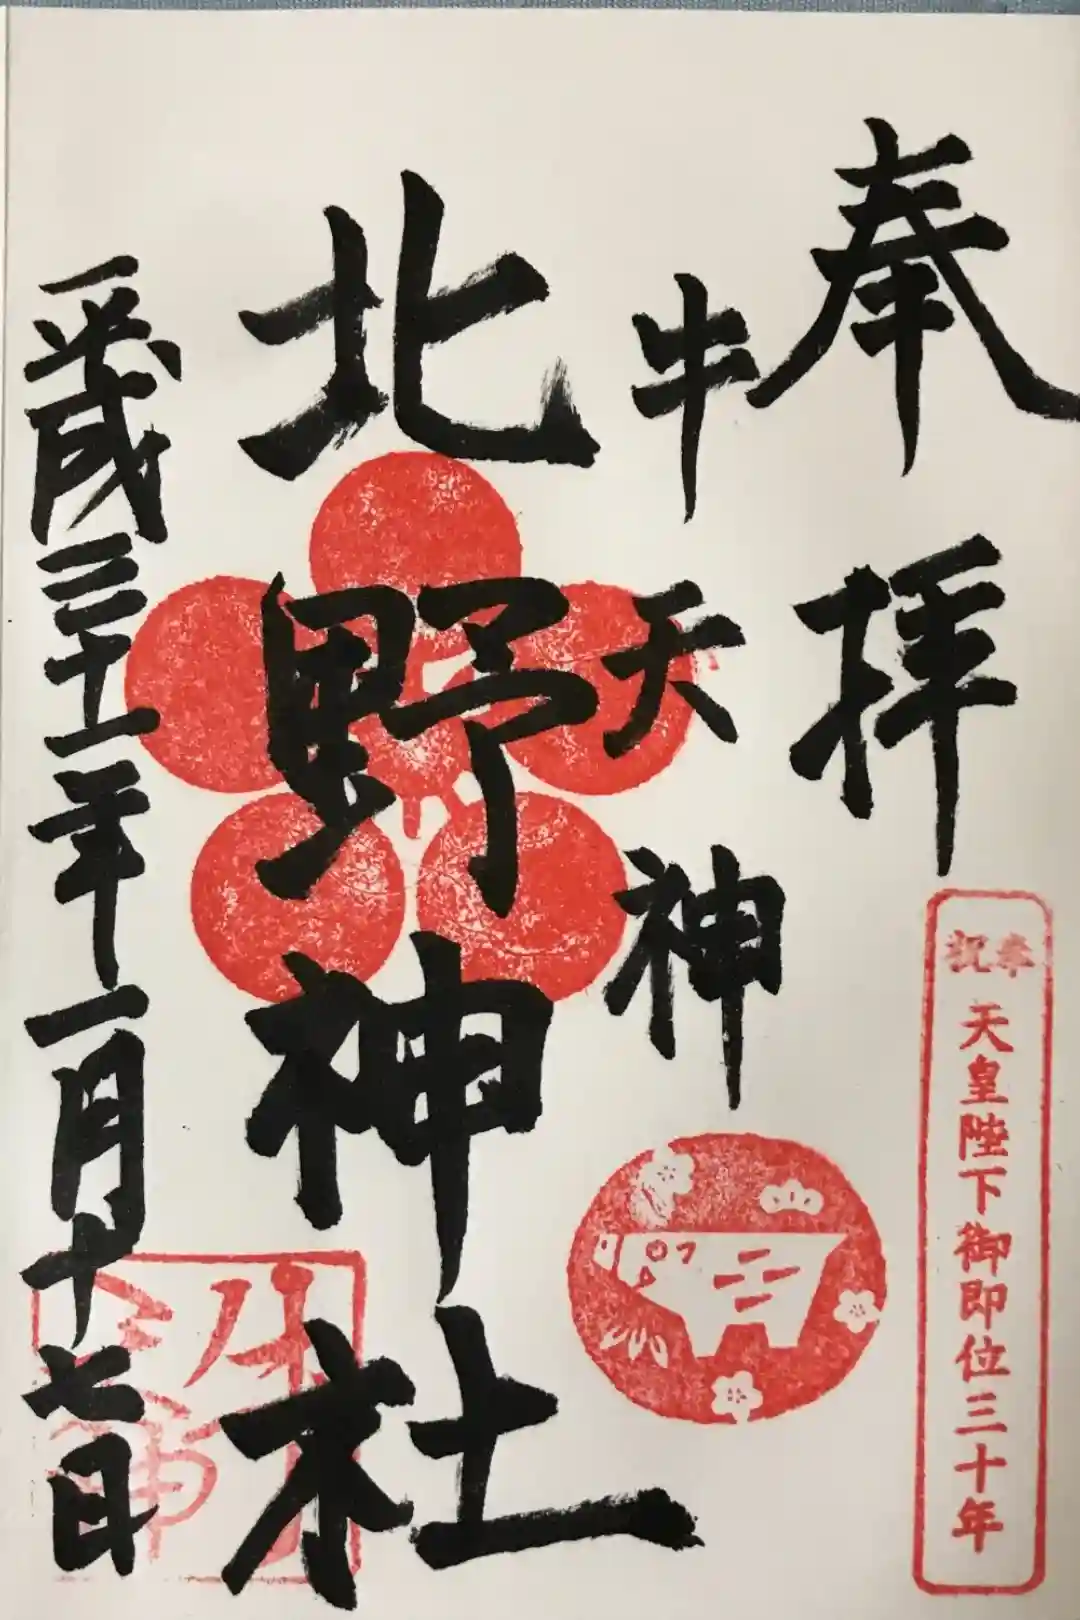 奉拝
牛天神
北野神社
平成三十一年一月十七日
奉祝
天皇陛下御即位三十年